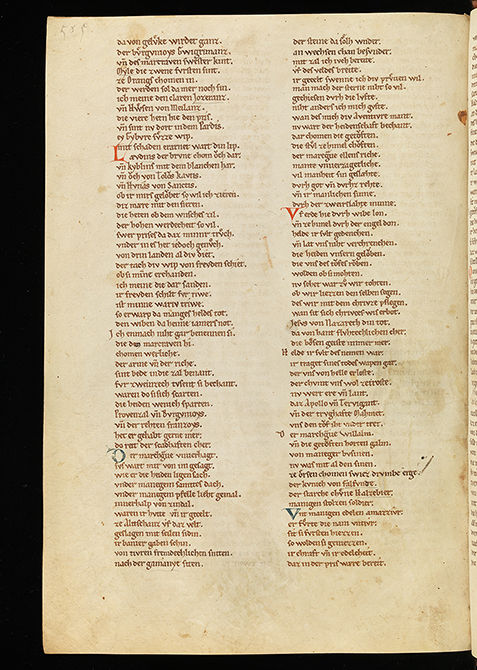 da von gelvke wirdet ganz.
der bvrgvnioys bwigrimanz.
vn des marcraven swester kint.
Myle die zwene fvrsten sint.
ze Orangs chomen in.
der werden sol da mer noch sin.
ich meine den claren Iozeranz.
vn Hvwesen von Meilanz.
die viere hern hie den pris.
vn sint nv dort indem pardis.
ey byhvrt svzze wip.
mit schaden erarnet wart div lip.
Landins der brvne chom och dar.
vn kyblins mit dem blanchen har.
vn och von Tolos Gavtiers.
vn Hvnas von Sanctes.
ob ir mirs gelobet so wil ich zieren.
diz mære mit den fieren.
die heten ob dem wnsches zil.
der hohen werdecheit so vil.
swer prises da daz minre trvch.
vnder in er het iedoch genvch.
von drin landen al div diet.
der tach div wip von frevden schiet.
ob si minne erchanden.
ich meine die dar sanden.
ir frevden schilt fvr riwe.
ist minne wariv triwe.
so erwarp da manges heldes tot.
den wiben da heime iamers not.
ich enmach niht gar benennen si.
die dem marcraven bi.
chomen werliche.
der arme vn der riche.
sint bede in die zal benant.
fvr zweinzech tvsent si bechant.
waren do si sich scarten.
die beiden wenich sparten.
Provenzal vn bvrgvnioys.
vn der rehten franzoys.
het er gehabt gerne mer.
do reit der scadhaften cher.
Der marchgrave vnverzagt.
sus wart mir von im gesagt.
wie er die heiden ligen sach.
vnder manigem samittes dach.
vnder manigem pfelle lieht gemal.
innerhalp von zindal.
waren ir hvtte vn ir gezelt.
ze Alitschanz vf daz velt.
geslagen mit seilen sidin.
ir banier gaben schin.
von tivren fremdechlichen sniten.
nach der gamanye siten.
der steine da solh wnder.
an wechsen chan besvnder.
mit zal ich iveh bereite.
vf des veldes breite.
ir gezelt swenne ich div prvven wil.
man mach der sterne niht so vil.
gechiesen dvrh die lvfte.
niht anders ich mich gvfte.
wan des mich div aventvre mant.
nv wart der heidenschaft bechant.
daz chomen die getovften.
die svl ze himel chovften.
der maregrave ellens riche.
mante vnverzagetliche.
vil manheit sin geslæhte.
dvrh got vn dvrhz rehte.
vn ir manlichen sinne.
dvrh der zweir slahte minne.
vf erde hie dvrh wibe lon.
vn ze himel dvrh der engel don.
helde ir svlt gedenchen.
vn lat vns niht verchrenchen.
die heiden vnsern gelovben.
die vns des tovfes roben.
wolden ob si mohten.
nv sehet war zv wir tohten.
ob wir liezzen den selben segen.
des wir mit dem chrivze pflegen.
wan sit sich chrivces wis erbot.
Jesvs von Nazareth din tot.
da von hant flvhtechlichen cher.
die bosen geiste immer mer.
helde ir svlt des nemen war.
ir traget sines todes wapen gar.
der vns von helle erloste.
der chvmt vns wol ze troste.
nv wert ere vn lant.
daz Apollo vn Tervigant.
vn der trvghafte Mahmet.
vns den tovf iht vnder tret.
Der marchgrave Willalm.
vn die getovften horten galm.
von maneger bvsinen.
nv was mit al den sinen.
ze orsen chomen swier drvmbe erge.
der kvnech von Falfvnde.
der starche chvne Halzebier.
manigen stolzen soldier.
vnt manigen edelen amazzvr.
er fvrte die nam vntvr.
sit si fvrsten hiezzen.
so wolden si geniezzen.
ir chraft vn ir edelcheit.
daz in der pris ware bereit.